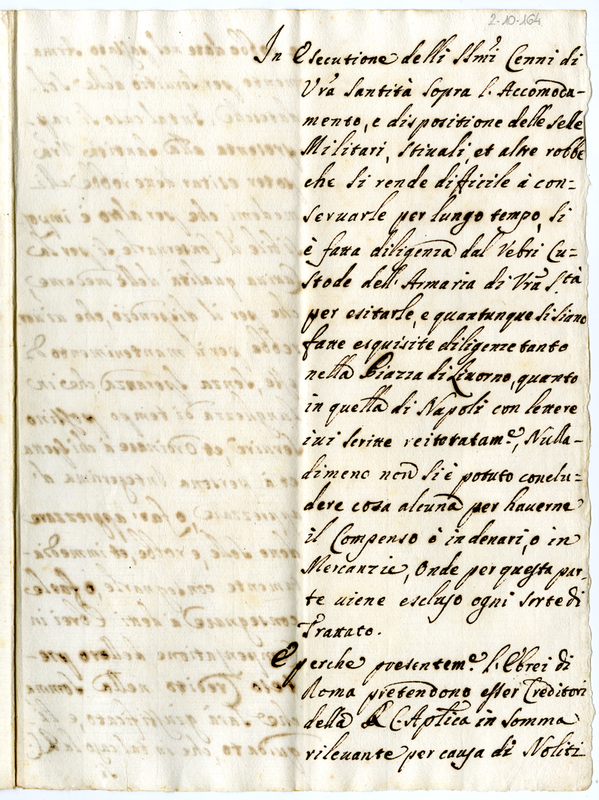 2-10-164
In Esecutione delli SSmi Cenni di
Vra Santità sopra l'Accomoda-
mento, e dispositione delle selle
Militari, Stiuali, et altre robbe
che si rende difficile à con=
seruarle per lungo tempo, si
è fatta diligenza dal Cu=
stode dell'Armaria di Vra Stà
per esitarle, e quantunque si siano
fatte esquisite diligenze tanto
nella Piazza di Liuorno, quanto
in quella di Napoli con lettere
iui scritte reiteratamte, Nulla-
dimeno non si è potuto conclu=
dere cosa alcuna per hauerne
il Compenso ò in denari, o in
Mercanzie, Onde per questa par-
te uiene escluso ogni sorte di
Trattato.
E perche presentemte l'Ebrei di
Roma pretendono esser Creditori
della R. C. Aplica in somma
rileuante per causa di Noliti